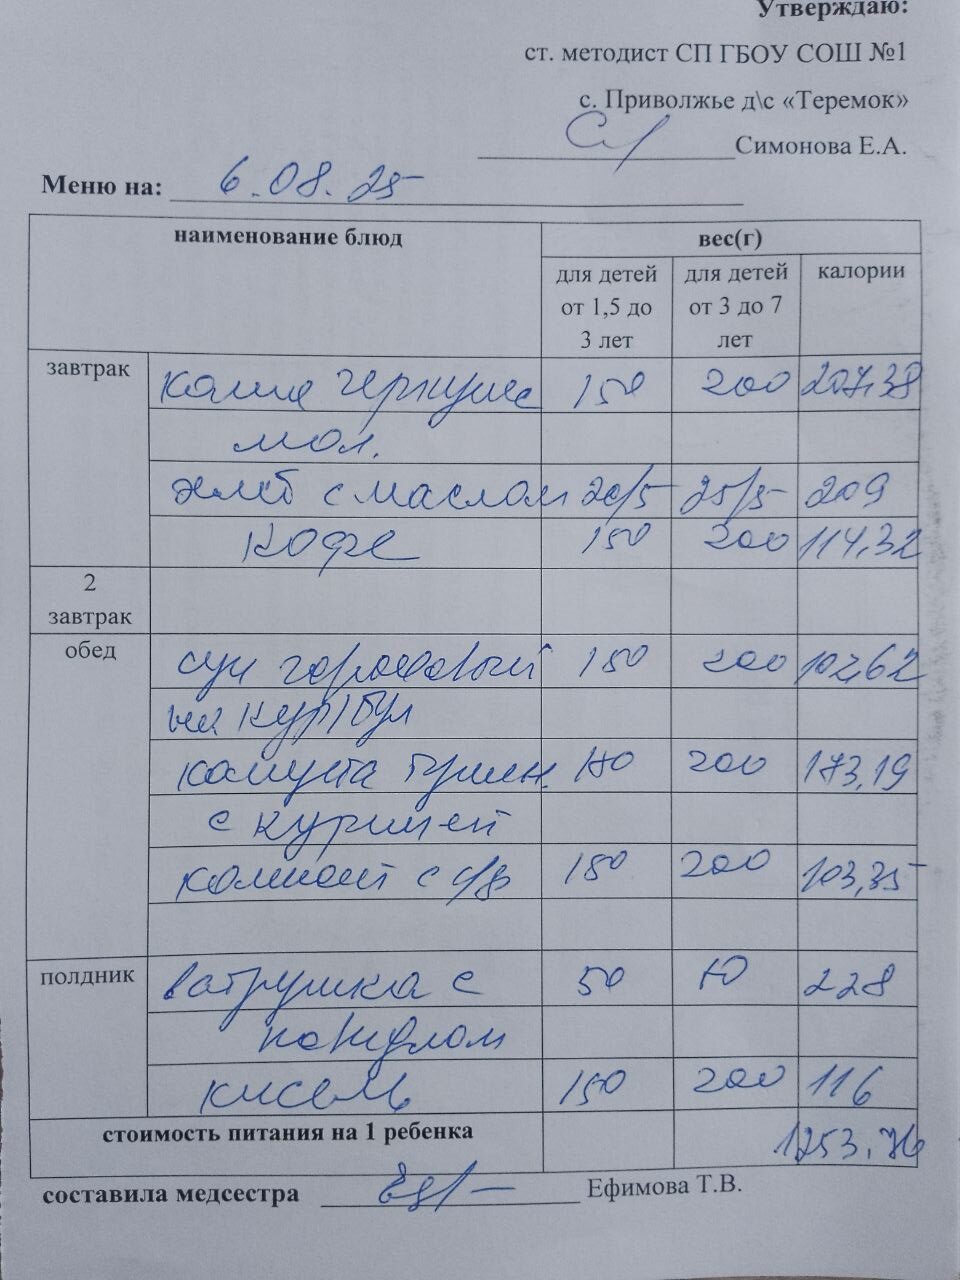 Утверждаю:
ст. методист СП ГБОУ СОШ №1
с. Приволжье д\с «Теремок»
Симонова Е.А.
Меню на: 6.08.25
наименование блюд вес(г)
для детей от 1,5 до 3 лет для детей от 3 до 7 лет калории
завтрак каша геркулес 150 200 207,38
мол.
хлеб с маслом 20/5 25/5 209
кофе 150 200 114,32
2 завтрак
обед суп гороховый 150 200 102,62
на кур/бул
капуста тушен. 200 173,19
с курицей
компот с с/ф 150 200 103,35
полдник ватрушка с 50 228
повидлом
кисель 150 200 116
стоимость питания на 1 ребенка 1253,76
составила медсестра Ефимова Т.В.